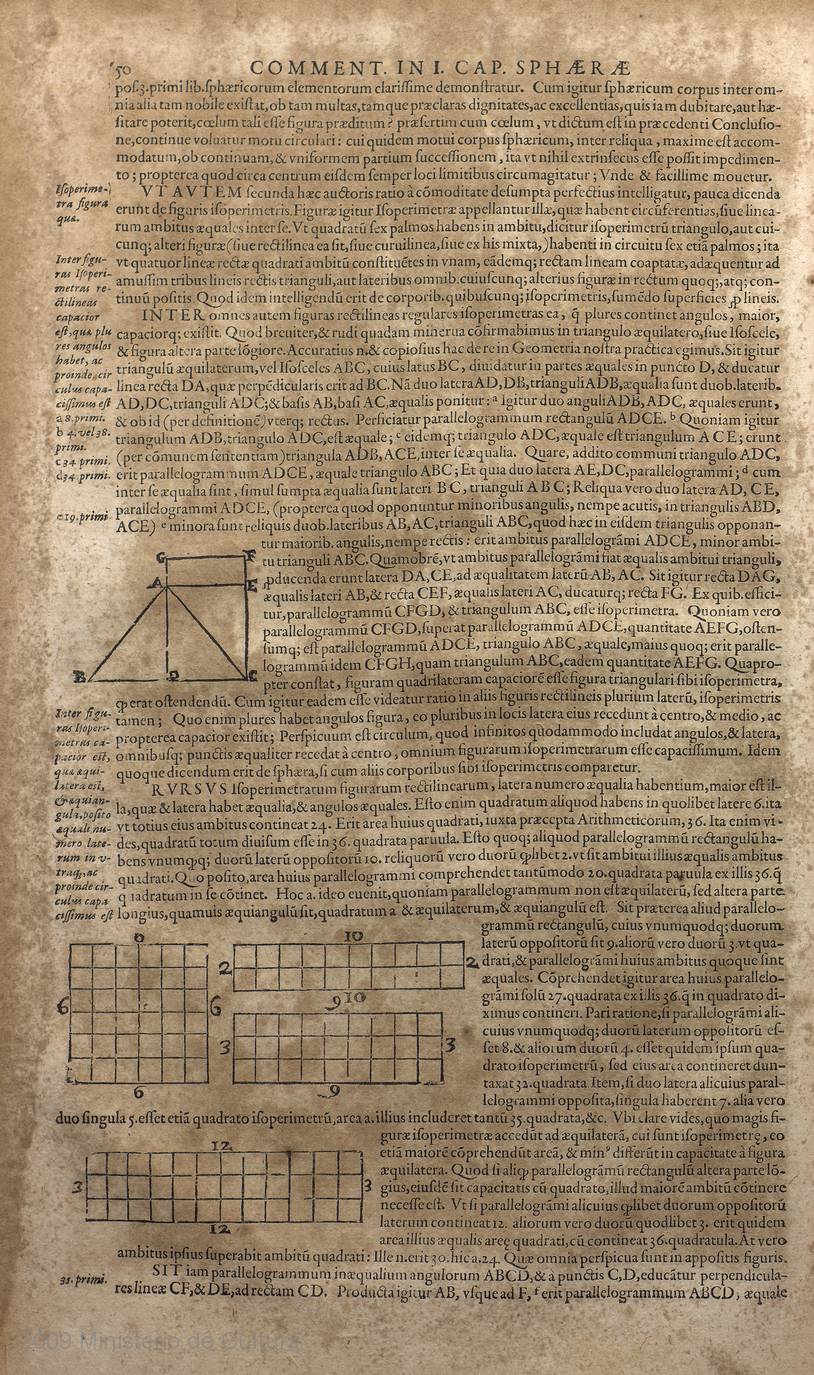 50 COMMENT. IN I. CAP. SPHÆRÆ
posſ3.primi lib.ſphæricorum elementorum clariſſime demonſtratur. Cum igitur ſphæricum corpus inter om-
nia alia tam nobile exiſtat,ob tam multas,tamque præclaras dignitates,ac excellentias,quis iam dubitare,aut hæ-
ſitare poterit,cœlum tali eſſe figura præditum? præſertim cum cœlum, vt dictum eſt in præcedenti Concluſio-
ne,continue voluatur motu circulari: cui quidem motui corpus ſphæricum, inter reliqua, maxime eſt accom-
modatum,ob continuam,& vniformem partium ſucceſſionem, ita vt nihil extrinſecus eſſe poſſit impedimen-
to; propterea quod circa centrum eiſdem ſemper loci limitibus circumagitatur; Vnde & facillime mouetur.
Iſoperime-
tra figura
quæ.
VT AVTEM ſecunda hæc auctoris ratio à cõmoditate deſumpta perfectius intelligatur, pauca dicenda
erunt de figuris iſoperimetris.Figuræ igitur Iſoperimetræ appellantur illæ,quæ habent circũferentias,ſiue linea-
rum ambitus æquales inter ſe.Vt quadratũ ſex palmos habens in ambitu,dicitur iſoperimetrũ triangulo,aut cui-
cunq; alteri figuræ(ſiue rectilinea ea ſit,ſiue curuilinea,ſiue ex his mixta,)habenti in circuitu ſex etiã palmos; ita
vt quatuor lineæ rectæ quadrati ambitũ conſtituẽtes in vnam, eãdemq; rectam lineam coaptatæ,adæquentur ad
amuſſim tribus lineis rectis trianguli,aut lateribus omnib.cuiuſcunq; alterius figuræ in rectum quoq;,atq; con-
tinuũ poſitis. Quod idem intelligendũ erit de corporib.quibuſcunq; iſoperimetris,ſumẽdo ſuperficies ꝓ lineis.
Inter figu-
ras Iſoperi-
metras re-
ctilineas
capacior
eſt, quæ plu
res angulos
habet, ac
proinde cir
culus capa-
ciſſimus eſt
a 8.primi.
b 4.vel 38.
primi.
c 34 primi.
d 34 primi.
e 19.primi
INTER omnes autem figuras rectilineas regulares iſoperimetras ea, q̃ plures continet angulos, maior,
capaciorq; exiſtit. Quod breuiter,& rudi quadam minerua cõfirmabimus in triangulo æquilatero,ſiue Iſoſcele,
& figura altera parte lõgiore.Accuratius n.& copioſius hac de re in Geometria noſtra practica egimus.Sit igitur
triangulũ æquilaterum,vel Iſoſceles ABC, cuius latus BC, diuidatur in partes æquales in puncto D, & ducatur
linea recta DA,quæ perpẽdicularis erit ad BC.Nã duo latera AD,DB,trianguli ADB,æqualia ſunt duob.laterib.
AD,DC,trianguli ADC;& baſis AB,baſi AC,æqualis ponitur: a Igitur duo anguli ADB, ADC, æquales erunt,
& ob id (per definitionẽ) vterq; rectus. Perficiatur parallelogrammum rectangulũ ADCE. b Quoniam igitur
triangulum ADB,triangulo ADC,eſt æquale; c eidemq; triangulo ADC,æquale eſt triangulum ACE; erunt
(per cõmunem ſententiam) triangula ADB,ACE,inter ſe æqualia. Quare, addito communi triangulo ADC,
erit parallelogrammum ADCE, æquale triangulo ABC; Et quia duo latera AE,DC,parallelogrammi; d cum
inter ſe æqualia ſint, ſimul ſumpta æqualia ſunt lateri BC, trianguli ABC; Reliqua vero duo latera AD, CE,
parallelogrammi ADCE, (propterea quod opponuntur minoribus angulis, nempe acutis, in triangulis ABD,
ACE) e minora ſunt reliquis duob.lateribus AB,AC,trianguli ABC,quod hæc in eiſdem triangulis opponan-
tur maiorib.angulis,nempe rectis: erit ambitus parallelogrãmi ADCE, minor ambi-
tu trianguli ABC.Quamobrẽ,vt ambitus parallelogrãmi fiat æqualis ambitui trianguli,
ꝓducenda erunt latera DA,CE,ad æqualitatem laterũ AB, AC. Sit igitur recta DAG,
æqualis lateri AB,& recta CEF, æqualis lateri AC, ducaturq; recta FG. Ex quib.effici-
tur,parallelogrammũ CFGD, & triangulum ABC, eſſe iſoperimetra. Quoniam vero
parallelogrammũ CFGD,ſuperat parallelogrammũ ADCE,quantitate AEFG,oſten-
ſumq; eſt parallelogrammũ ADCE, triangulo ABC, æquale,maius quoq; erit paralle-
logrammũ idem CFGH,quam triangulum ABC,eadem quantitate AEFG. Quapro-
pter conſtat, figuram quadrilateram capaciorẽ eſſe figura triangulari ſibi iſoperimetra,
G F
A E
B D C
ꝙ erat oſtendendũ. Cum igitur eadem eſſe videatur ratio in aliis figuris rectilineis plurium laterũ, iſoperimetris
tamen; Quo enim plures habet angulos figura, eo pluribus in locis latera eius recedunt à centro,& medio, ac
propterea capacior exiſtit; Perſpicuum eſt circulum, quod infinitos quodammodo includat angulos,& latera,
omnibuſq; punctis æqualiter recedat à centro, omnium figurarum iſoperimetrarum eſſe capaciſſimum. Idem
quoque dicendum erit de ſphæra,ſi cum aliis corporibus ſibi iſoperimetris comparetur.
Inter figu-
ras Iſoperi-
metras ca-
pacior eſt,
quæ æqui-
latera eſt,
& æquian-
gula,poſito
æquali nu-
mero late-
rum in v-
traq;,ac
proinde cir-
culus capa
ciſſimus eſt
RVRSVS Iſoperimetrarum figurarum rectilinearum, latera numero æqualia habentium,maior eſt il-
la,quæ & latera habet æqualia,& angulos æquales. Eſto enim quadratum aliquod habens in quolibet latere 6.ita
vt totius eius ambitus contineat 24. Erit area huius quadrati, iuxta præcepta Arithmeticorum, 36. Ita enim vi-
des,quadratũ totum diuiſum eſſe in 36. quadrata paruula. Eſto quoq; aliquod parallelogrammũ rectangulũ ha-
bens vnumꝙq; duorũ laterũ oppoſitorũ 10. reliquorũ vero duorũ ꝙlibet 2.vt ſit ambitui illius æqualis ambitus
quadrati.Quo poſito,area huius parallelogrammi comprehendet tantũmodo 20.quadrata paruula ex illis 36.q̃
quadratum in ſe cõtinet. Hoc a. ideo euenit,quoniam parallelogrammum non eſt æquilaterũ, ſed altera parte
longius,quamuis æquiangulũ ſit,quadratum a. & æquilaterum,& æquiangulũ eſt. Sit præterea aliud parallelo-
grammũ rectangulũ, cuius vnumquodq; duorum
laterũ oppoſitorũ ſit 9.aliorũ vero duorũ 3.vt qua-
drati,& parallelogrãmi huius ambitus quoque ſint
æquales. Cõprehendet igitur area huius parallelo-
grãmi ſolũ 27.quadrata ex illis 36.q̃ in quadrato di-
ximus contineri. Pari ratione,ſi parallelogrãmi ali-
cuius vnumquodq; duorũ laterum oppoſitorũ eſ-
ſet 8.& aliorum duorũ 4. eſſet quidem ipſum qua-
drato iſoperimetrũ, ſed eius area contineret dun-
taxat 32.quadrata Item,ſi duo latera alicuius paral-
lelogrammi oppoſita,ſingula haberent 7. alia vero
6 10
2 2
6 6 9 10
3 3
6 9
duo ſingula 5.eſſet etiã quadrato iſoperimetrũ,area a.illius includeret tantũ 35.quadrata,&c. Vbi clare vides,quo magis fi-
guræ iſoperimetræ accedũt ad æquilaterã, cui ſunt iſoperimetrę, eo
etiã maiorẽ cõprehendũt areã, & min⁹ differũt in capacitate à figura
æquilatera. Quod ſi aliqꝙ parallelogrãmũ rectangulũ altera parte lõ-
gius,eiuſdẽ ſit capacitatis cũ quadrato,illud maiorẽ ambitũ cõtinere
neceſſe eſt. Vt ſi parallelogrãmi alicuius ꝙlibet duorum oppoſitorũ
laterum contineat 12. aliorum vero duorũ quodlibet 3. erit quidem
area illius æqualis areę quadrati,cũ contineat 36.quadratula.At vero
12
3 3
12
ambitus ipſius ſuperabit ambitũ quadrati: Ille n.erit 30.hic a.24. Quæ omnia perſpicua ſunt in appoſitis figuris.
35.primi.
SIT iam parallelogrammum inæqualium angulorum ABCD,& à punctis C,D,educãtur perpendicula-
res lineæ CF,& DE,ad rectam CD. Producta igitur AB, vſque ad F, f erit parallelogrammum ABCD, æquale
2009 Ministerio de Cultura